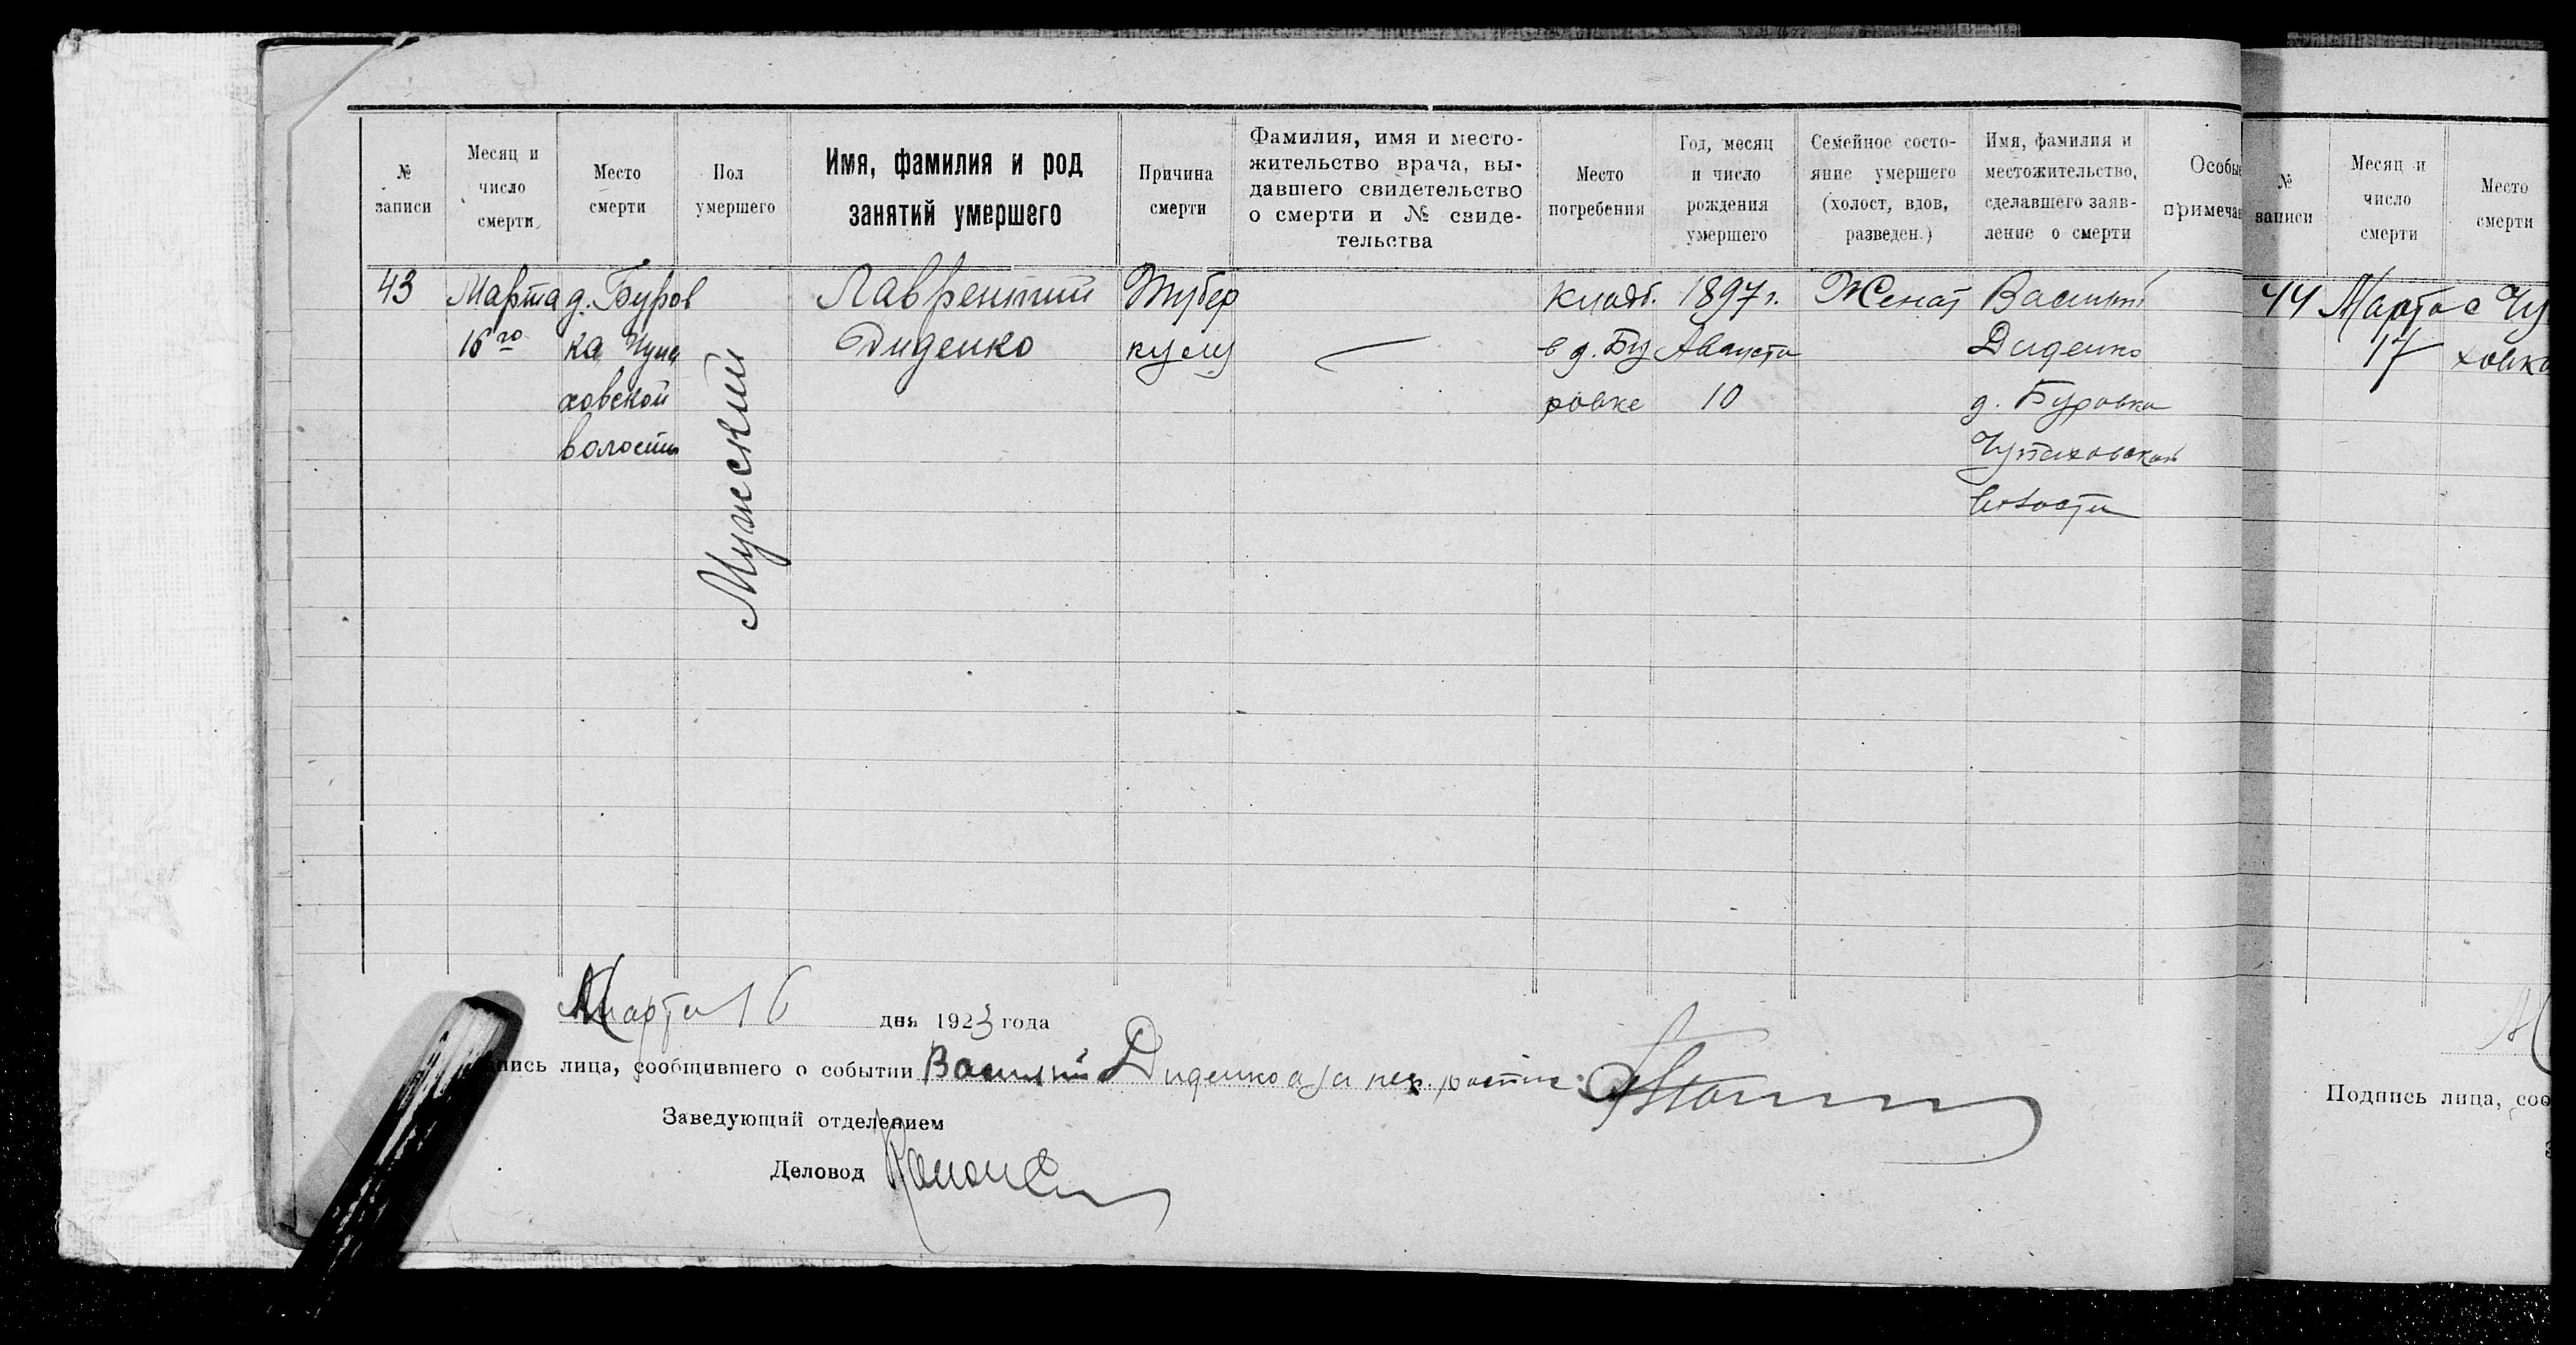 № записи
Месяц и число смерти
Место смерти
Пол умершего
Имя, фамилия и род занятий умершего
Причина смерти
Фамилия, имя и место-
жительство врача, вы-
давшего свидетельство
о смерти и № свиде-
тельства
Место погребения
Год, месяц и число рождения умершего
Семейное состо-
яние умершего
(холост, вдов,
разведен.)
Имя, фамилия и
местожительство,
сделавшего заяв-
ление о смерти
Особые
примечан
43
Марта
16го
д. Буров
ка Чупа
ховской
волости
Мужской
Лаврентий
Диденко
Тубер
кулез
Кладб.
в д. Бу
ровке
1897 г.
Августа
10
Женат
Василий
Диденко
д. Буровка
Чупаховской
волости
Марта 16 дня 1923 года
пись лица, сообщившего о событии Василий Диденко а за нег.
Заведующий отделением
Деловод
№ записи
Месяц и число смерти
Место смерти
44
Марта
17
с Чу
ховка
Подпись лица, соо